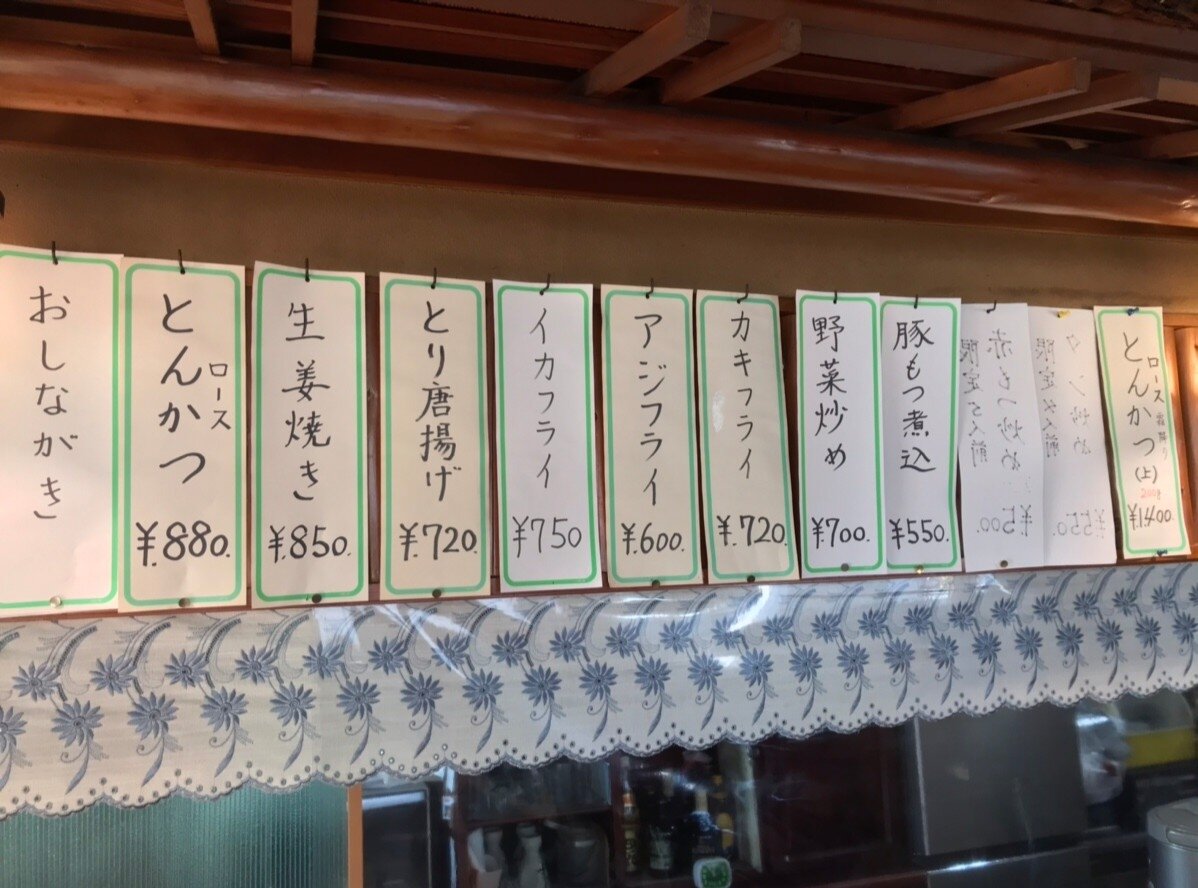 おしながき
とんかつ
ロース
¥.880.
生姜焼き
¥.850.
とり唐揚げ
¥.720.
イカフライ
¥750
アジフライ
¥.600.
カキフライ
¥.720.
野菜炒め
¥700.
豚もつ煮込
¥550.
赤もつ炒め
限定5人前
¥500.
タン炒め
¥550.
ロース 霜降り
とんかつ(上)
200g
¥1400.